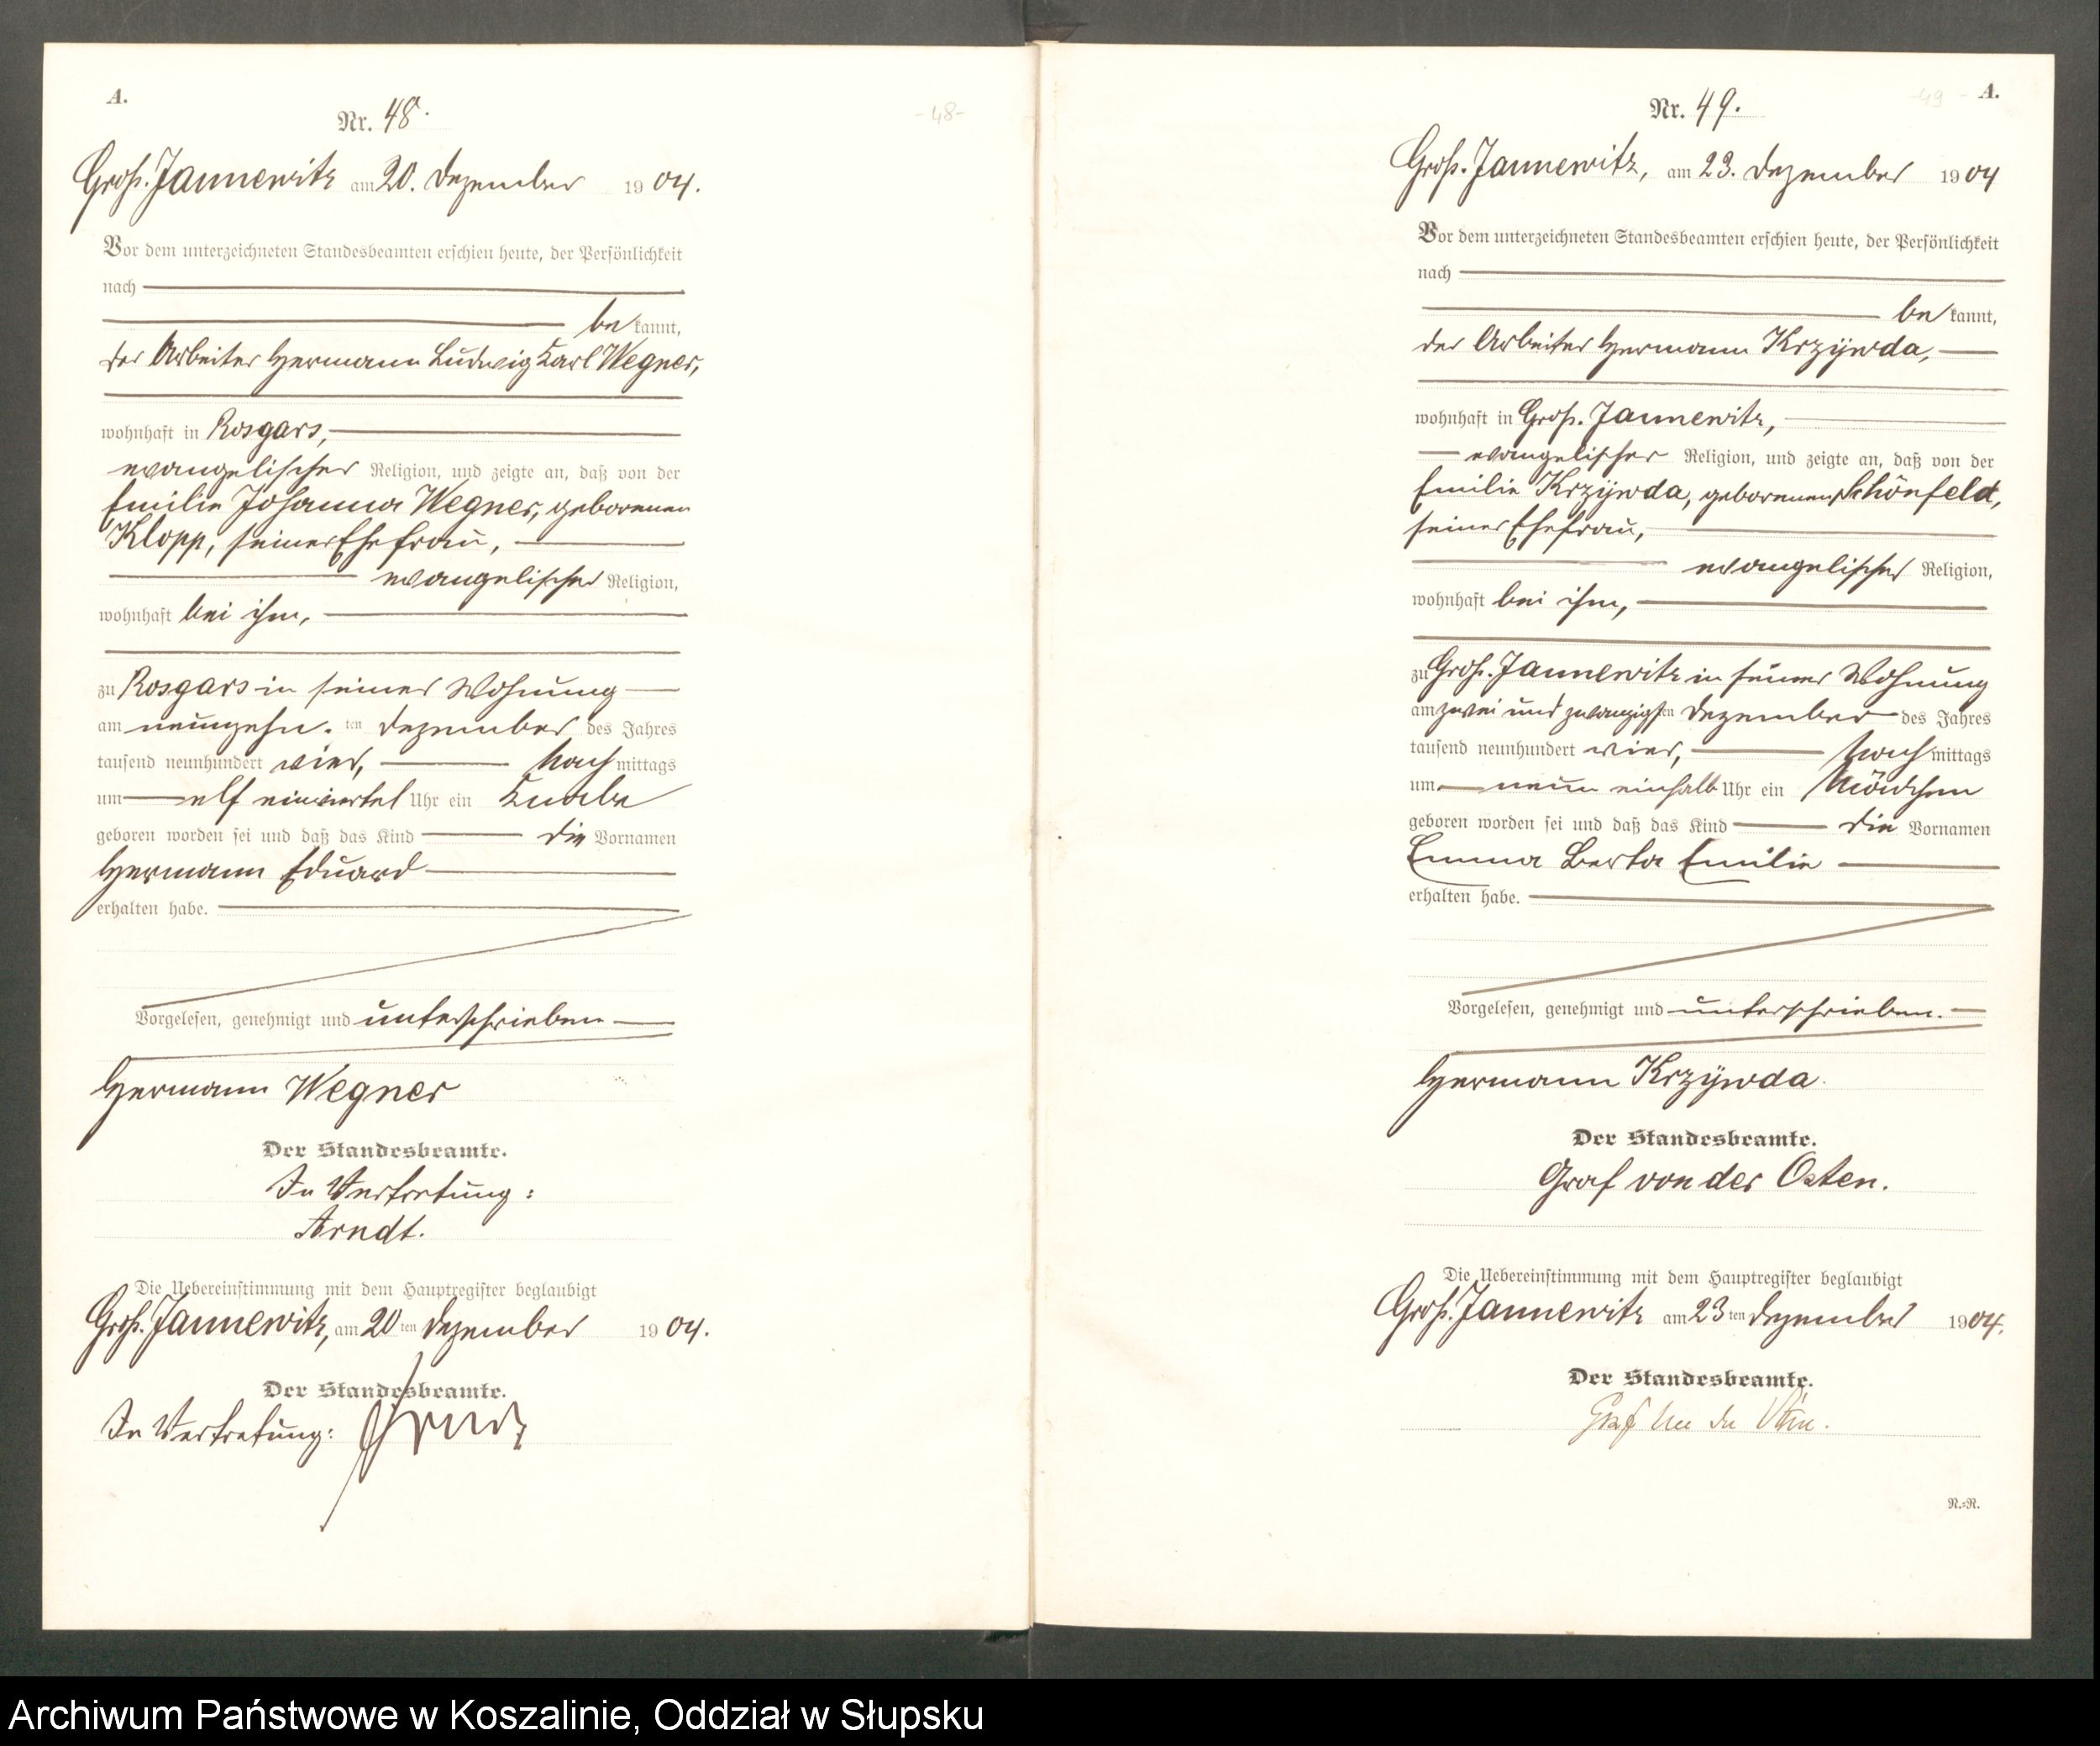 A.
Nr. 48.
-48-
Groß-Jannewitz am 20. Dezember 1904.
Vor dem unterzeichneten Standesbeamten erschien heute, der Persönlichkeit
nach
be kannt,
der Arbeiter Hermann Ludwig Karl Wegner,
wohnhaft in Rosgars,
evangelischer Religion, und zeigte an, daß von der
Emilie Johanna Wegner, geborenen
Klopp, seiner Ehefrau,
evangelischer Religion,
wohnhaft bei ihm,
zu Rosgars in seiner Wohnung
am neunzehn-ten Dezember des Jahres
tausend neunhundert vier, Nachmittags
um elf einviertel Uhr ein Knabe
geboren worden sei und daß das Kind die Vornamen
Hermann Eduard
erhalten habe.
Vorgelesen, genehmigt und unterschrieben
Hermann Wegner
Der Standesbeamte.
In Vertretung:
Arndt.
Die Uebereinstimmung mit dem Hauptregister beglaubigt
Groß-Jannewitz, am 20ten Dezember 1904.
Der Standesbeamte.
In Vertretung: Arndt
-49- A.
Nr. 49.
Groß-Jannewitz, am 23. Dezember 1904
Vor dem unterzeichneten Standesbeamten erschien heute, der Persönlichkeit
nach
be kannt,
der Arbeiter Hermann Krzÿwda,
wohnhaft in Groß-Jannewitz,
evangelischer Religion, und zeigte an, daß von der
Emilie Krzÿwda, geborenen Schönfeld,
seiner Ehefrau,
evangelischer Religion,
wohnhaft bei ihm,
zu Groß-Jannewitz in seiner Wohnung
am zwei und zwanzigsten Dezember des Jahres
tausend neunhundert vier, Nachmittags
um neun einhalb Uhr ein Mädchen
geboren worden sei und daß das Kind die Vornamen
Emma Berta Emilie
erhalten habe.
Vorgelesen, genehmigt und unterschrieben.
Hermann Krzÿwda.
Der Standesbeamte.
Graf von der Osten.
Die Uebereinstimmung mit dem Hauptregister beglaubigt
Groß-Jannewitz am 23ten Dezember 1904.
Der Standesbeamte.
Graf von der Osten.
N.=N.
Archiwum Państwowe w Koszalinie, Oddział w Słupsku